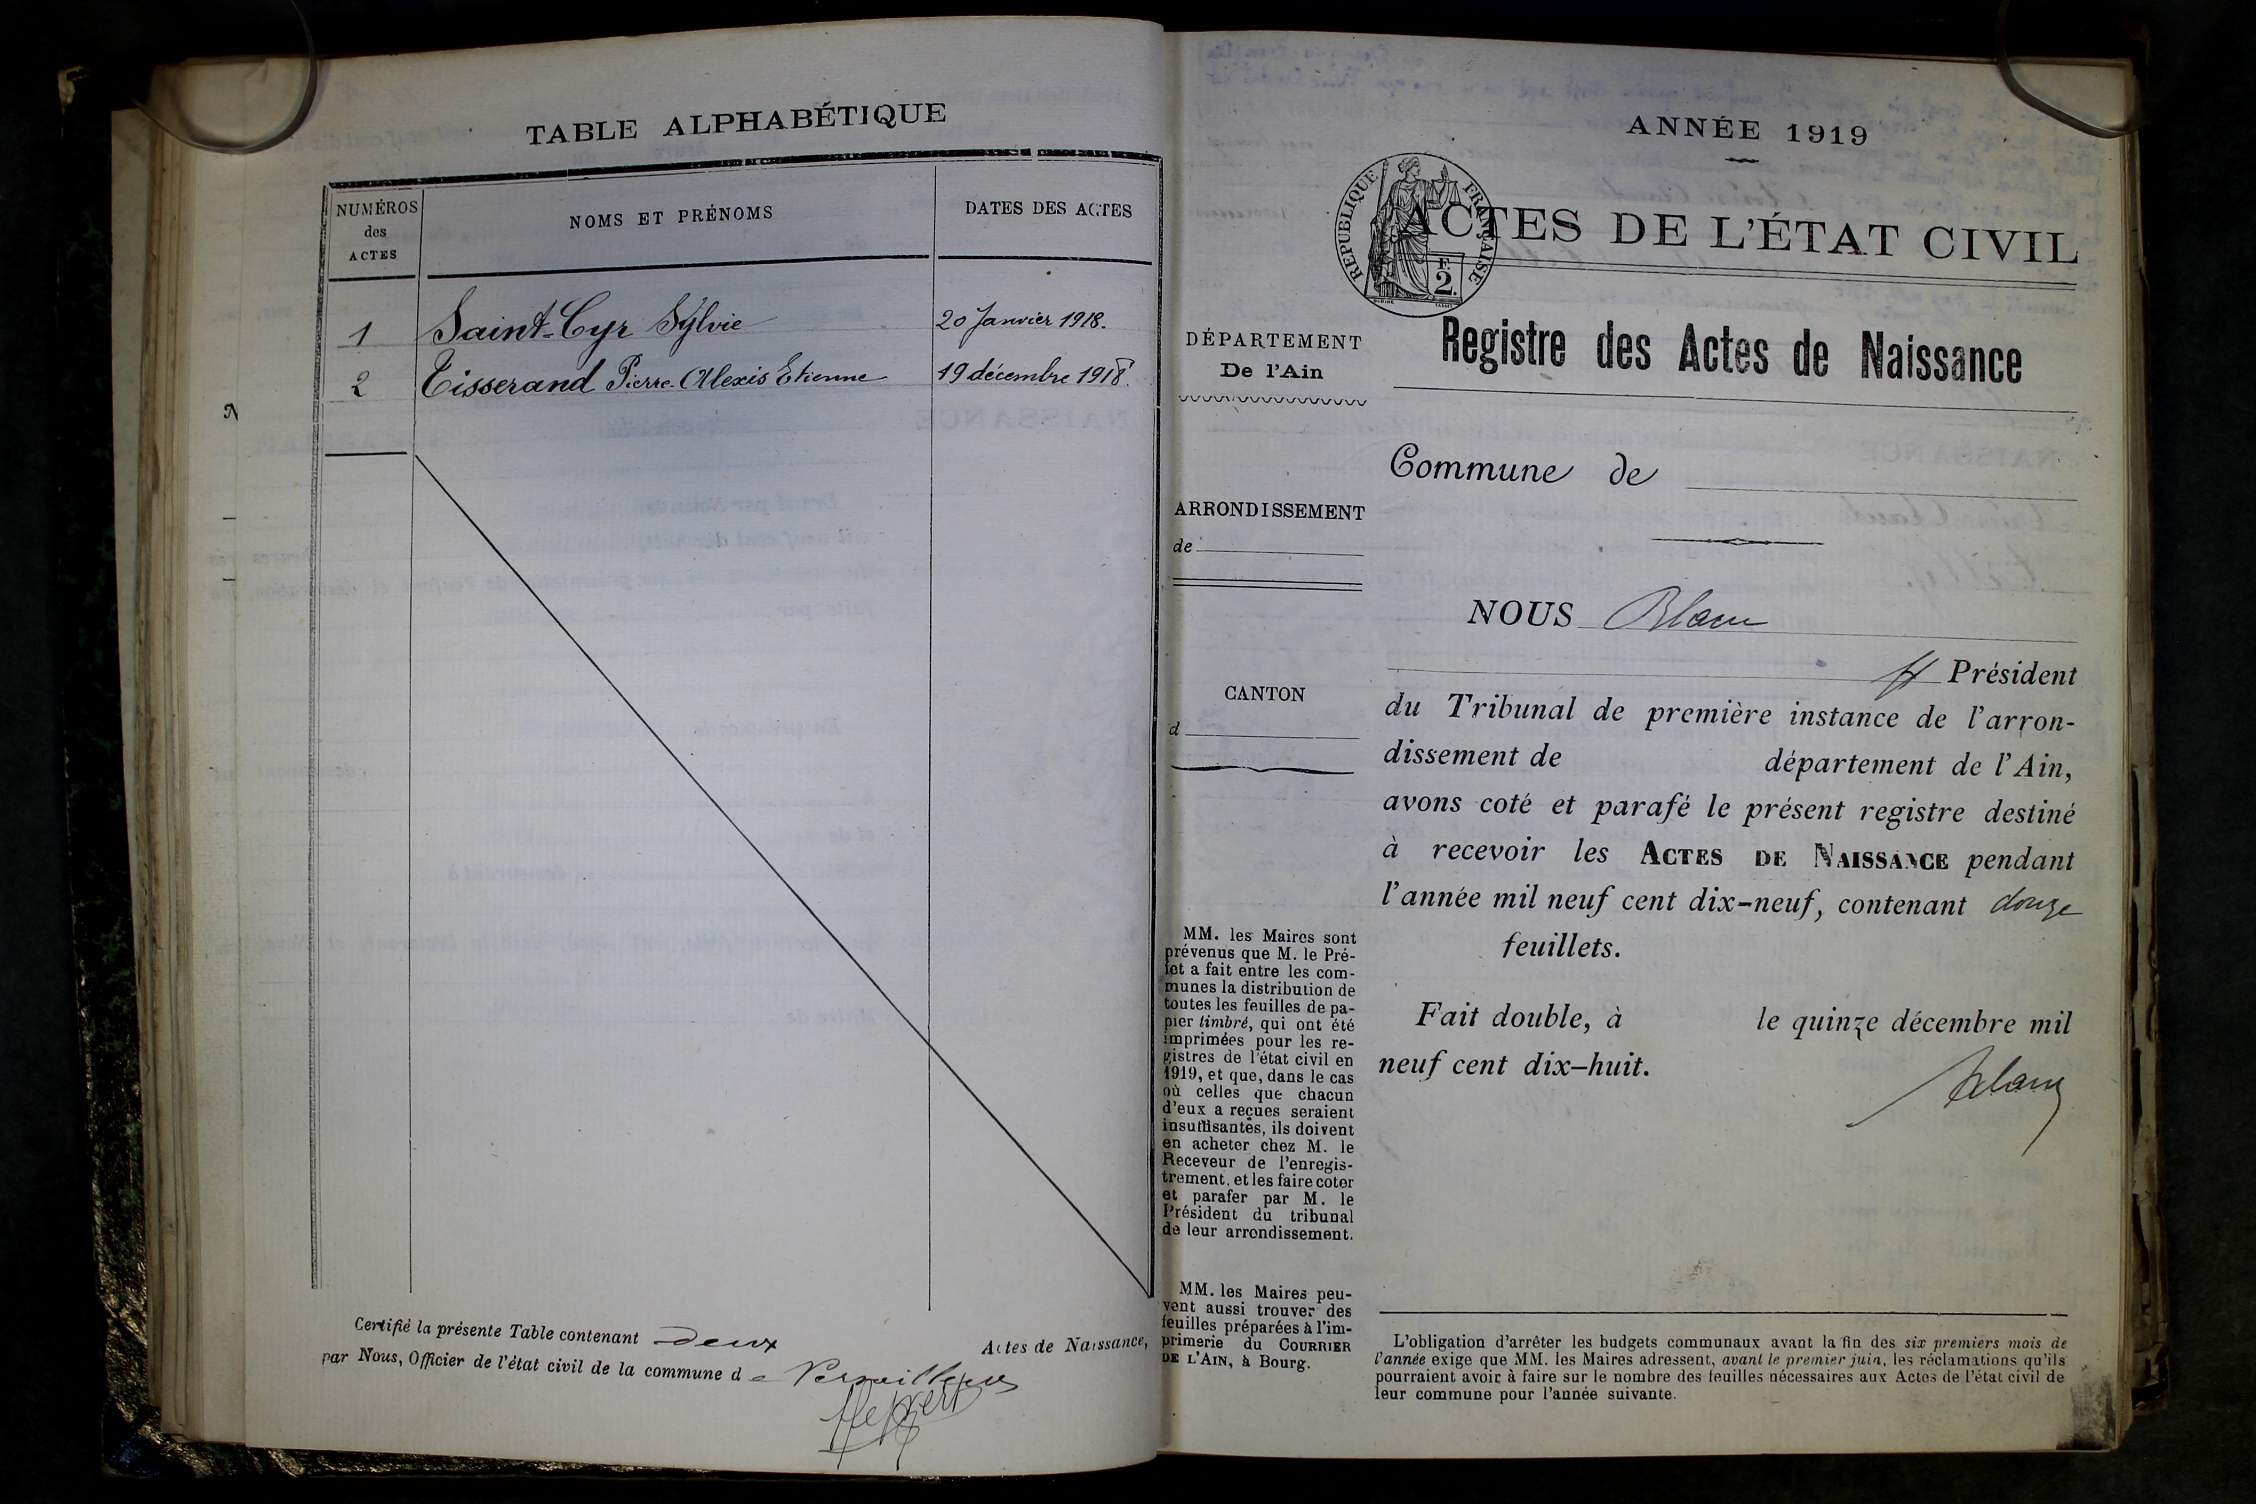 TABLE ALPHABÉTIQUE
NUMÉROS
des
ACTES
NOMS ET PRÉNOMS
DATES DES ACTES
1 Saint-Cyr Sylvie 20 Janvier 1918.
2 Tisserand Pierre-Alexis Etienne 19 décembre 1918.
Certifié la présente Table contenant deux Actes de Naissance,
par Nous, Officier de l'état civil de la commune de
ANNÉE 1919
RÉPUBLIQUE FRANÇAISE
F.
2.
ACTES DE L'ÉTAT CIVIL
DÉPARTEMENT
De l'Ain
ARRONDISSEMENT
de
CANTON
d
MM. les Maires sont
prévenus que M. le Pré-
fet a fait entre les com-
munes la distribution de
toutes les feuilles de pa-
pier timbré, qui ont été
imprimées pour les re-
gistres de l'état civil en
1919, et que, dans le cas
où celles que chacun
d'eux a reçues seraient
insuffisantes, ils doivent
en acheter chez M. le
Receveur de l'enregis-
trement, et les faire coter
et parafer par M. le
Président du tribunal
de leur arrondissement.
MM. les Maires peu-
vent aussi trouver des
feuilles préparées à l'im-
primerie du COURRIER
DE L'AIN, à Bourg.
Registre des Actes de Naissance
Commune de
NOUS Blanc
Président
du Tribunal de première instance de l'arron-
dissement de département de l'Ain,
avons coté et parafé le présent registre destiné
à recevoir les ACTES DE NAISSANCE pendant
l'année mil neuf cent dix-neuf, contenant douze
feuillets.
Fait double, à le quinze décembre mil
neuf cent dix-huit.
Blanc
L'obligation d'arrêter les budgets communaux avant la fin des six premiers mois de
l'année exige que MM. les Maires adressent, avant le premier juin, les réclamations qu'ils
pourraient avoir à faire sur le nombre des feuilles nécessaires aux Actes de l'état civil de
leur commune pour l'année suivante.